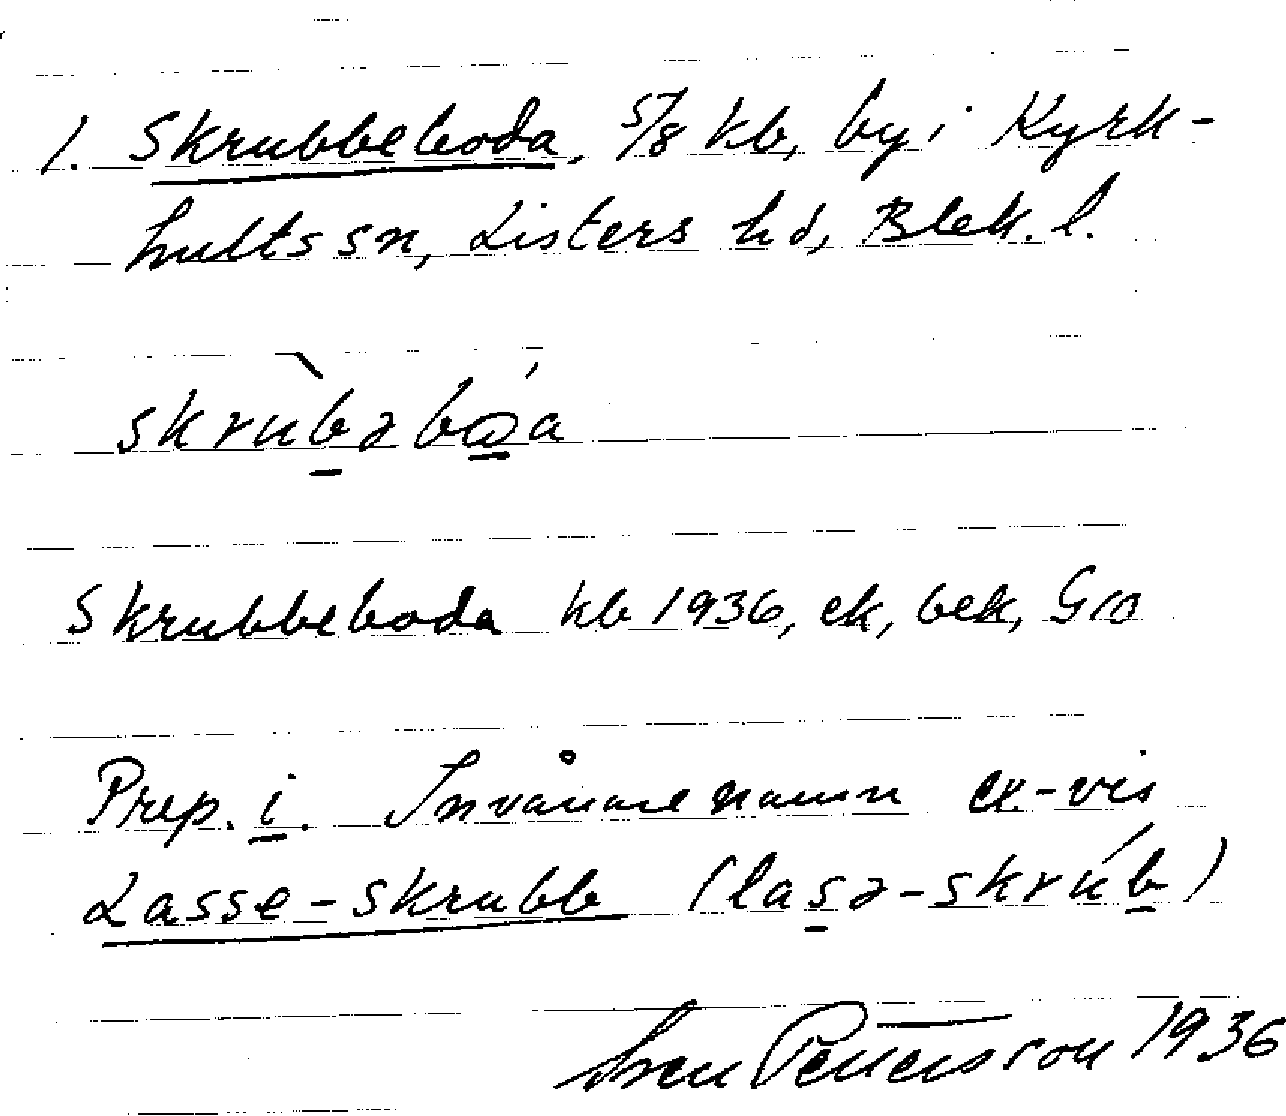 1. Skrubbeboda, 5/8 kb, by i Kyrk-
hults sn, Listers hd, Blek. l.
skrùbəbꙍ́a
Skrubbeboda kb 1936, ek, bek, G10
Prep. i. Invånarenamn ex-vis
Lasse-skrubb (lasə-skrúb)
Sven Pettersson 1936